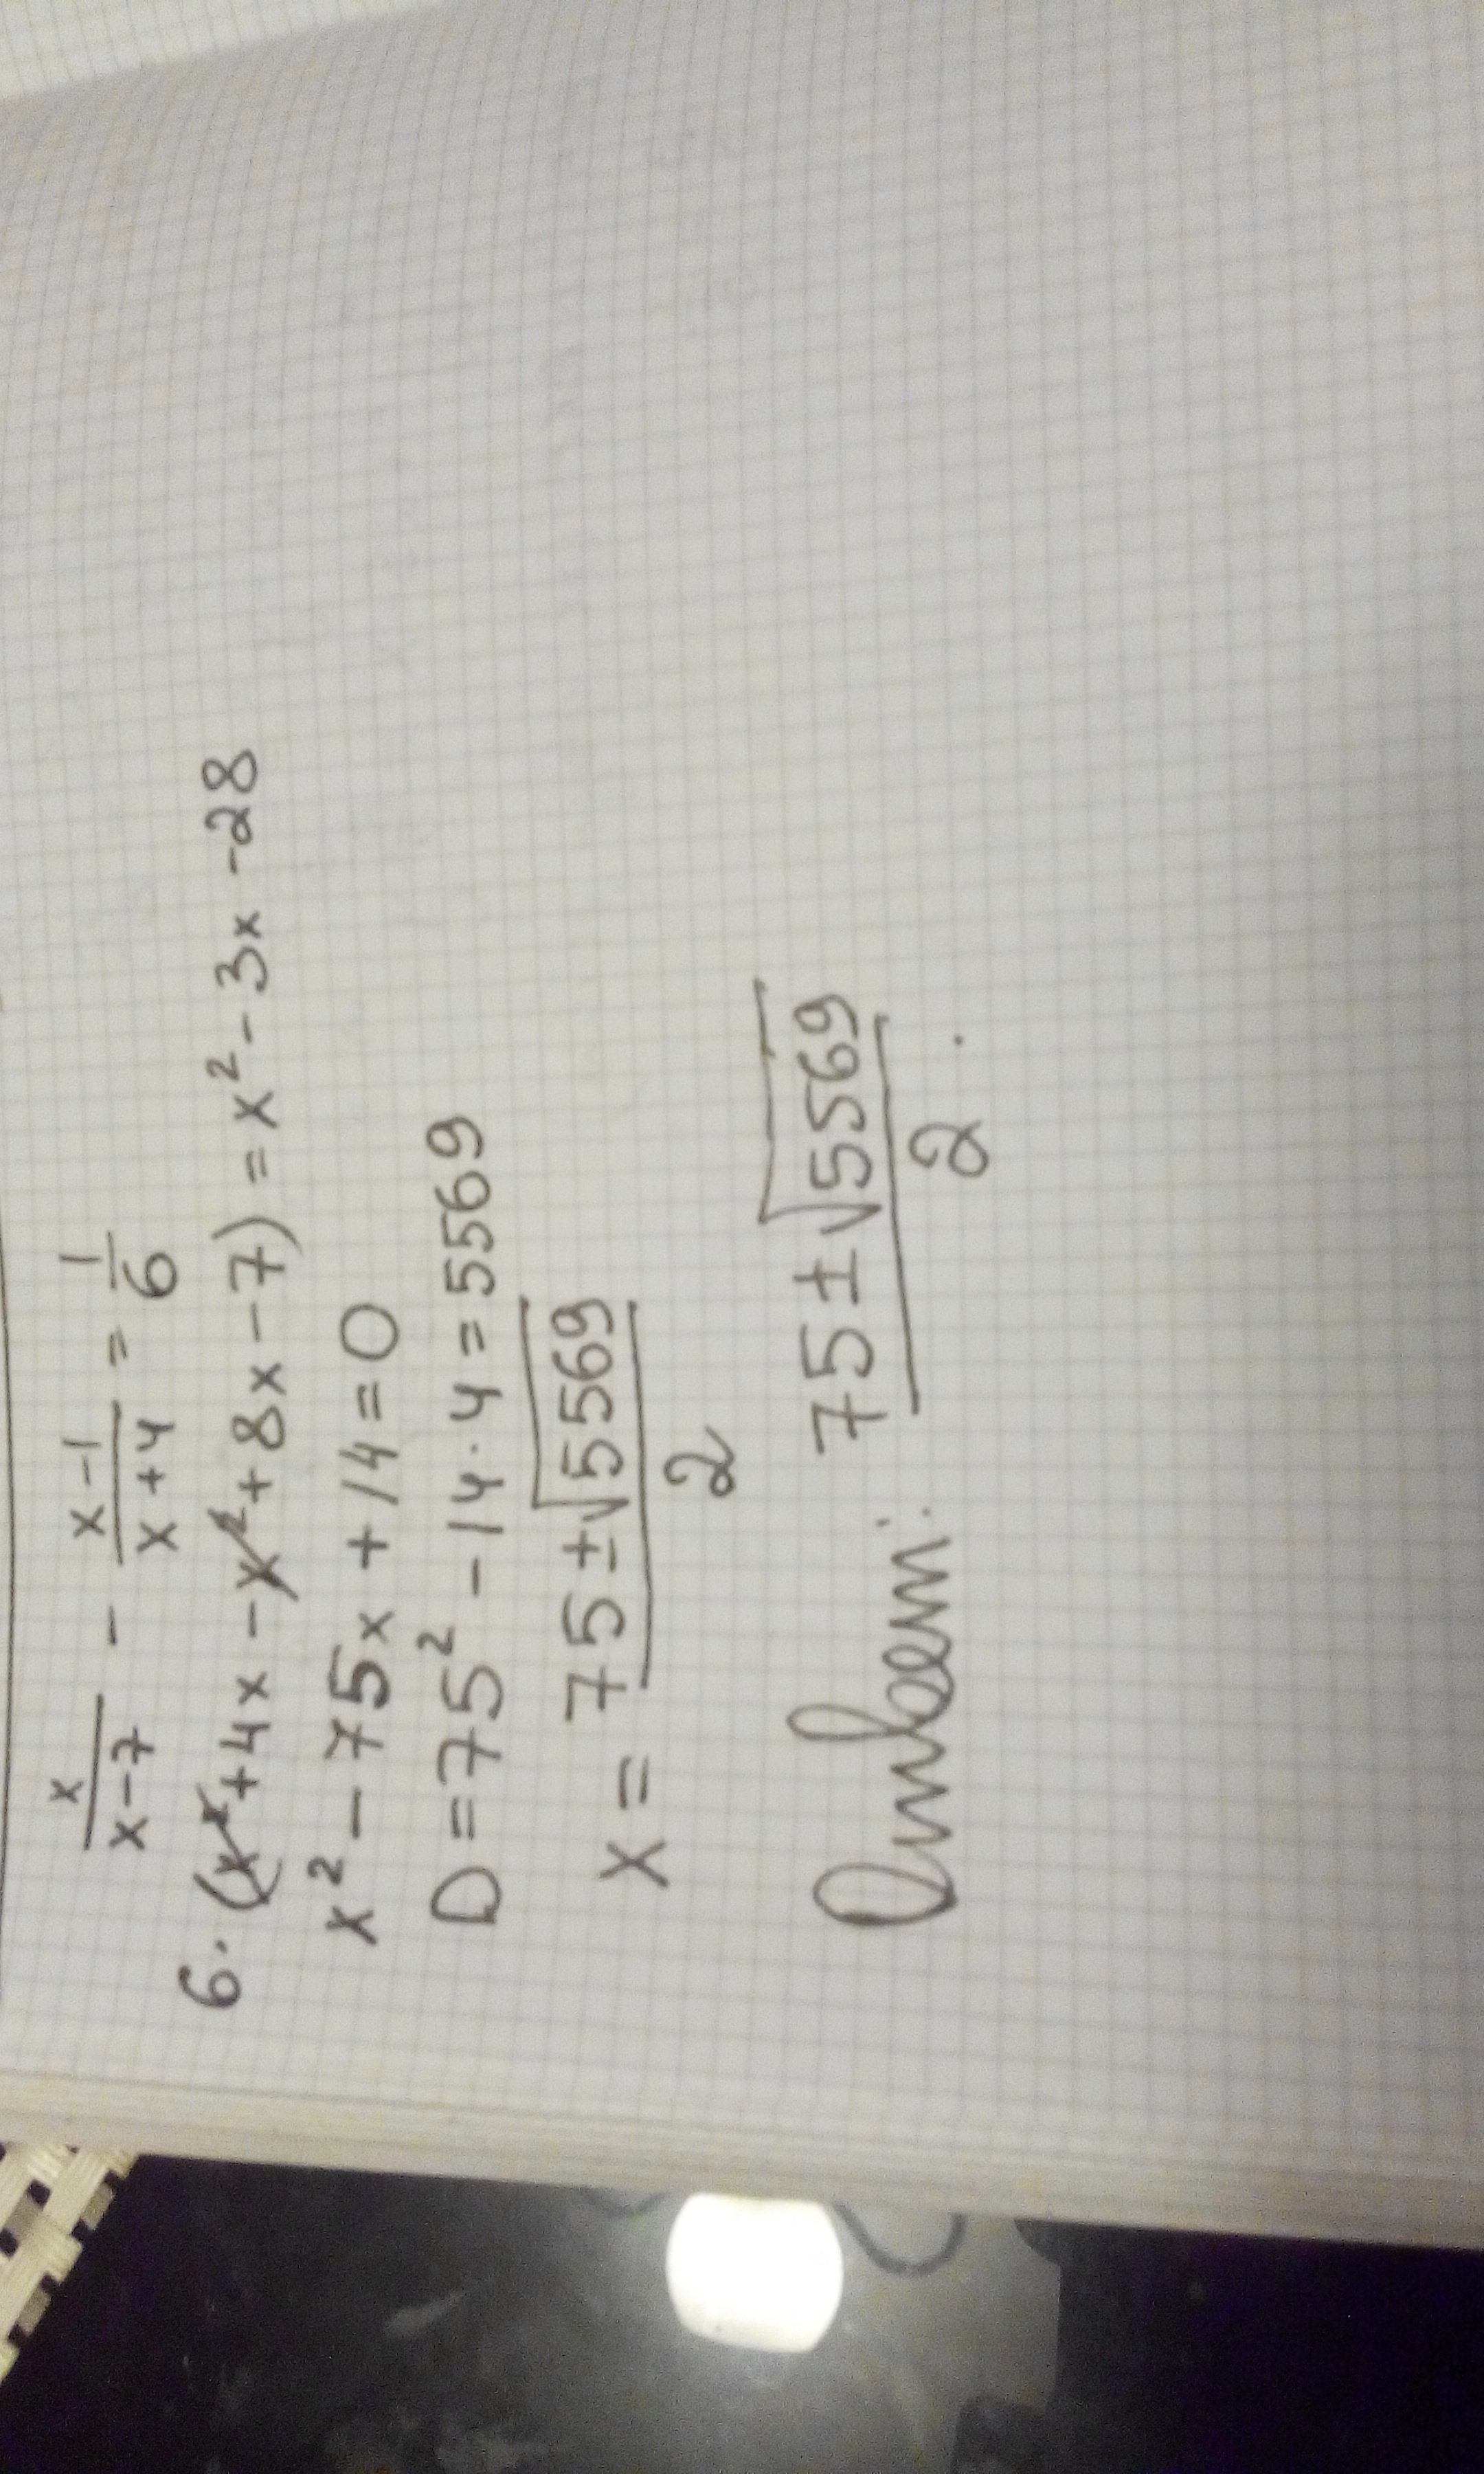 x/(x-7) - (x-1)/(x+4) = 1/6
6·(x²+4x-x²+8x-7)=x²-3x-28
x²-75x+14=0
D=75²-14·4=5569
x = (75±√5569)/2
Ответ: (75±√5569)/2.